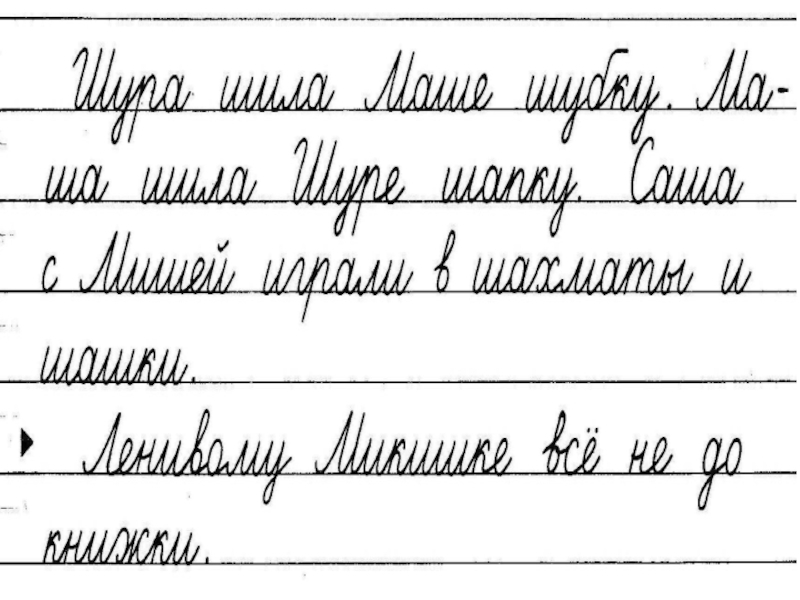 Шура шила Маше шубку. Ма-
ша шила Шуре шапку. Саша
с Мишей играли в шахматы и
шашки.
Ленивому Микишке всё не до
книжки.